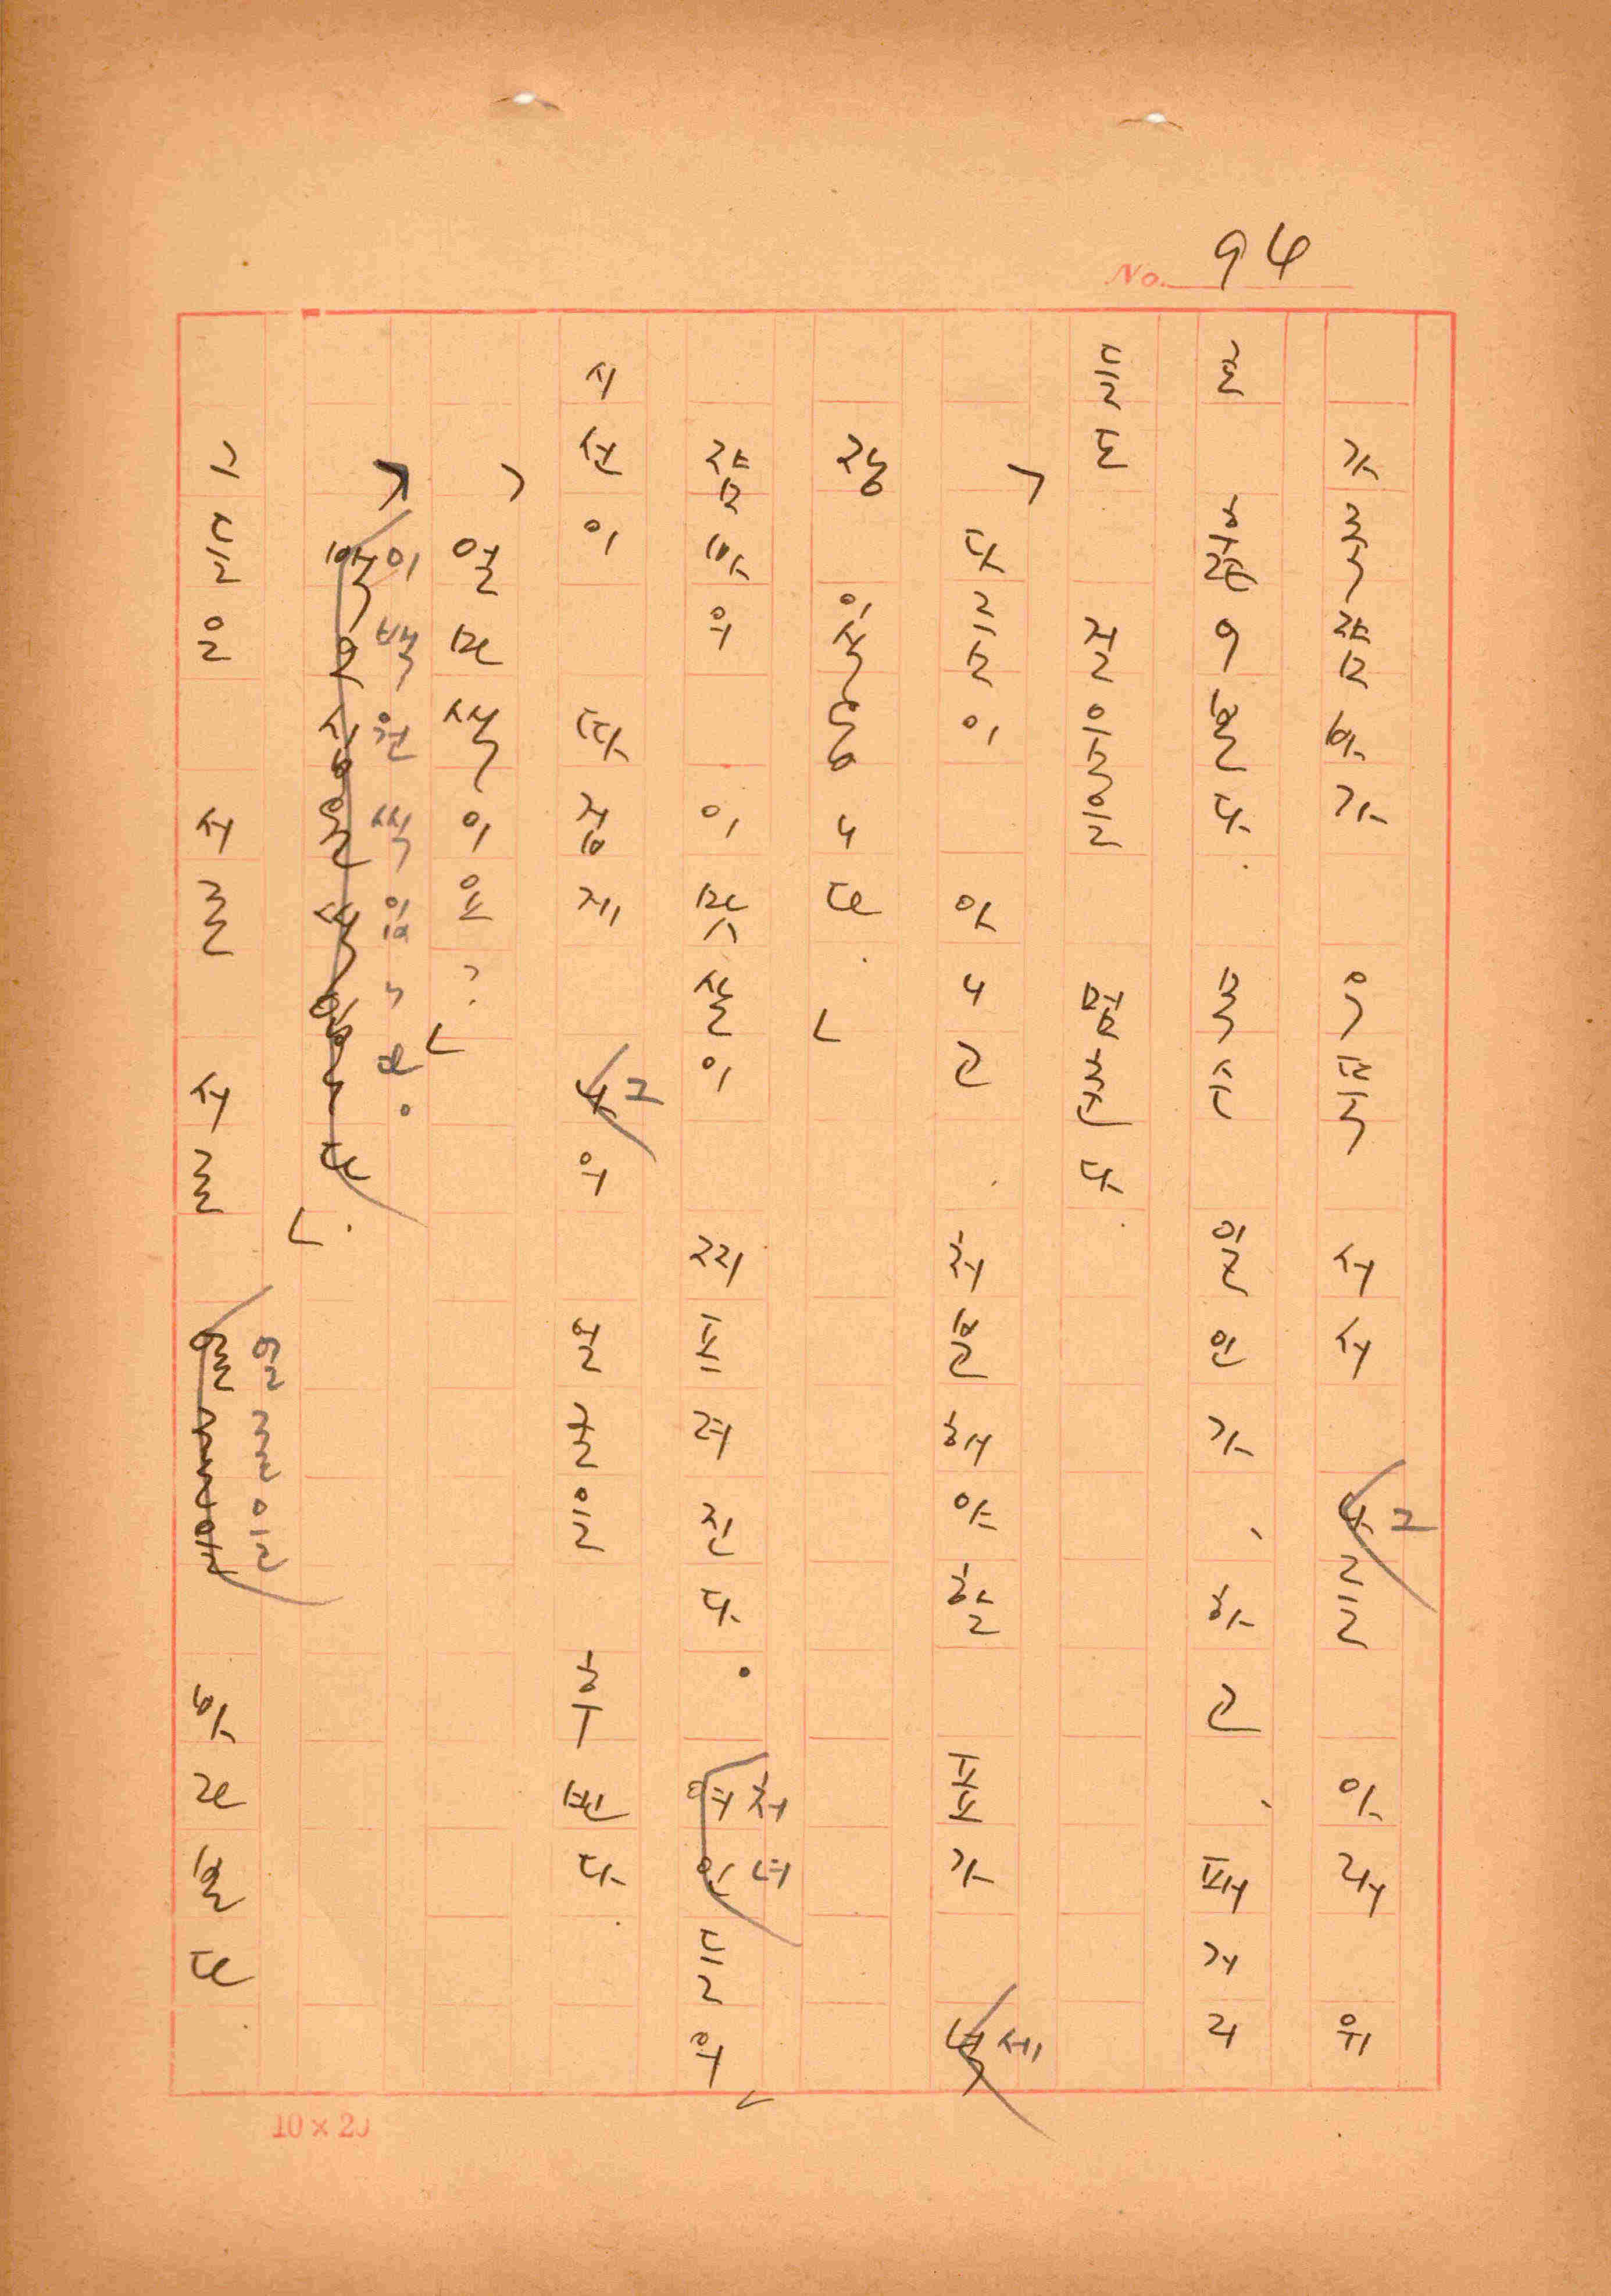 No. 94
가죽잠바가 우뚝 서서 나그를 아래위
로 훑어본다. 목수 일인가, 하고, 패거리
들도 걸음을 멈춘다.
「다름이 아니고. 처분해야할 표가 넉세
장 있읍니다.」
잠바의 이맛살이 찌푸려진다. 여인처녀들의
시선이 따갑게 나그의 얼굴을 후빈다.
「얼마씩이요?」
「백오십원씩입니다이백원씩입니다.」.
그들은 서로 서로 얼굴을 바라본다
10×20